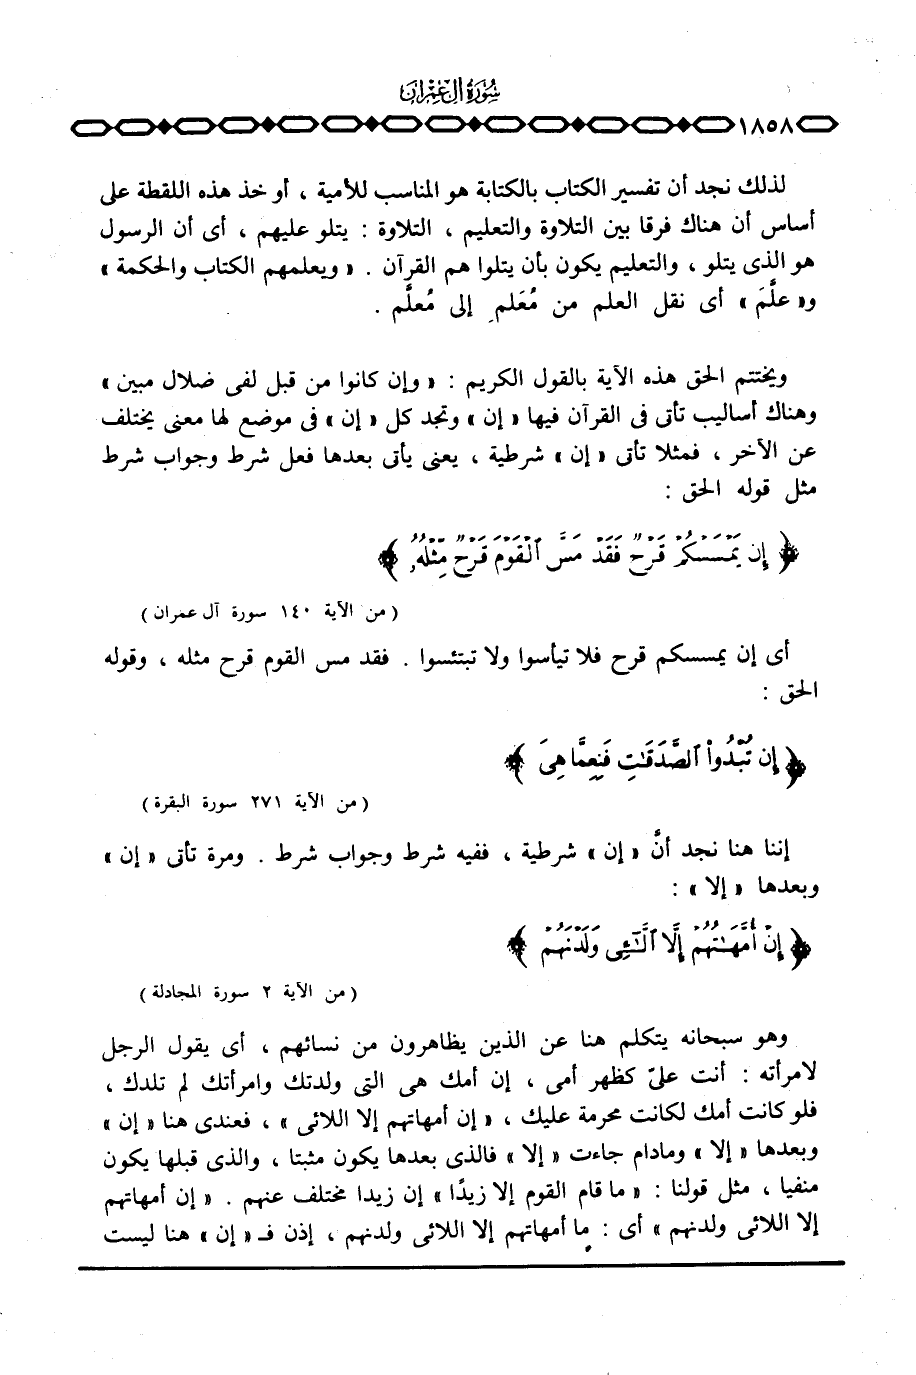 سورة آل عمران
١٨٥٨
لذلك نجد أن تفسير الكتاب بالكتابة هو المناسب للأمية ، أو خذ هذه اللقطة على
أساس أن هناك فرقا بين التلاوة والتعليم ، التلاوة : يتلو عليهم ، أى أن الرسول
هو الذى يتلو ، والتعليم يكون بأن يتلوا هم القرآن . « ويعلمهم الكتاب والحكمة »
و« علَّمَ » أى نقل العلم من مُعَلم إلى مُعلَّم .
ويختتم الحق هذه الآية بالقول الكريم : « وإن كانوا من قبل لفى ضلال مبين »
وهناك أساليب تأتى فى القرآن فيها « إن » وتجد كل « إن » فى موضع لها معنى يختلف
عن الآخر ، فمثلا تأتى « إن » شرطية ، يعنى يأتى بعدها فعل شرط وجواب شرط
مثل قوله الحق :
﴿ إِن يَمْسَسْكُمْ قَرْحٌ فَقَدْ مَسَّ ٱلْقَوْمَ قَرْحٌ مِّثْلُهُۥ ﴾
( من الآية ١٤٠ سورة آل عمران )
أى إن يمسسكم قرح فلا تيأسوا ولا تبتئسوا . فقد مس القوم قرح مثله ، وقوله
الحق :
﴿ إِن تُبْدُوا۟ ٱلصَّدَقَٰتِ فَنِعِمَّا هِىَ ﴾
( من الآية ٢٧١ سورة البقرة )
إننا هنا نجد أنَّ « إن » شرطية ، ففيه شرط وجواب شرط . ومرة تأتى « إن »
وبعدها « إلا » :
﴿ إِنْ أُمَّهَٰتُهُمْ إِلَّا ٱلَّٰٓـِٔى وَلَدْنَهُمْ ﴾
( من الآية ٢ سورة المجادلة )
وهو سبحانه يتكلم هنا عن الذين يظاهرون من نسائهم ، أى يقول الرجل
لامرأته : أنت علىّ كظهر أمى ، إن أمك هى التى ولدتك وامرأتك لم تلدك ،
فلو كانت أمك لكانت محرمة عليك ، « إن أمهاتهم إلا اللائى » ، فعندى هنا « إن »
وبعدها « إلا » ومادام جاءت « إلا » فالذى بعدها يكون مثبتا ، والذى قبلها يكون
منفيا ، مثل قولنا : « ما قام القوم إلا زيدًا » إن زيدا مختلف عنهم . « إن أمهاتهم
إلا اللائى ولدنهم » أى : ما أمهاتهم إلا اللائى ولدنهم ، إذن فـ « إن » هنا ليست